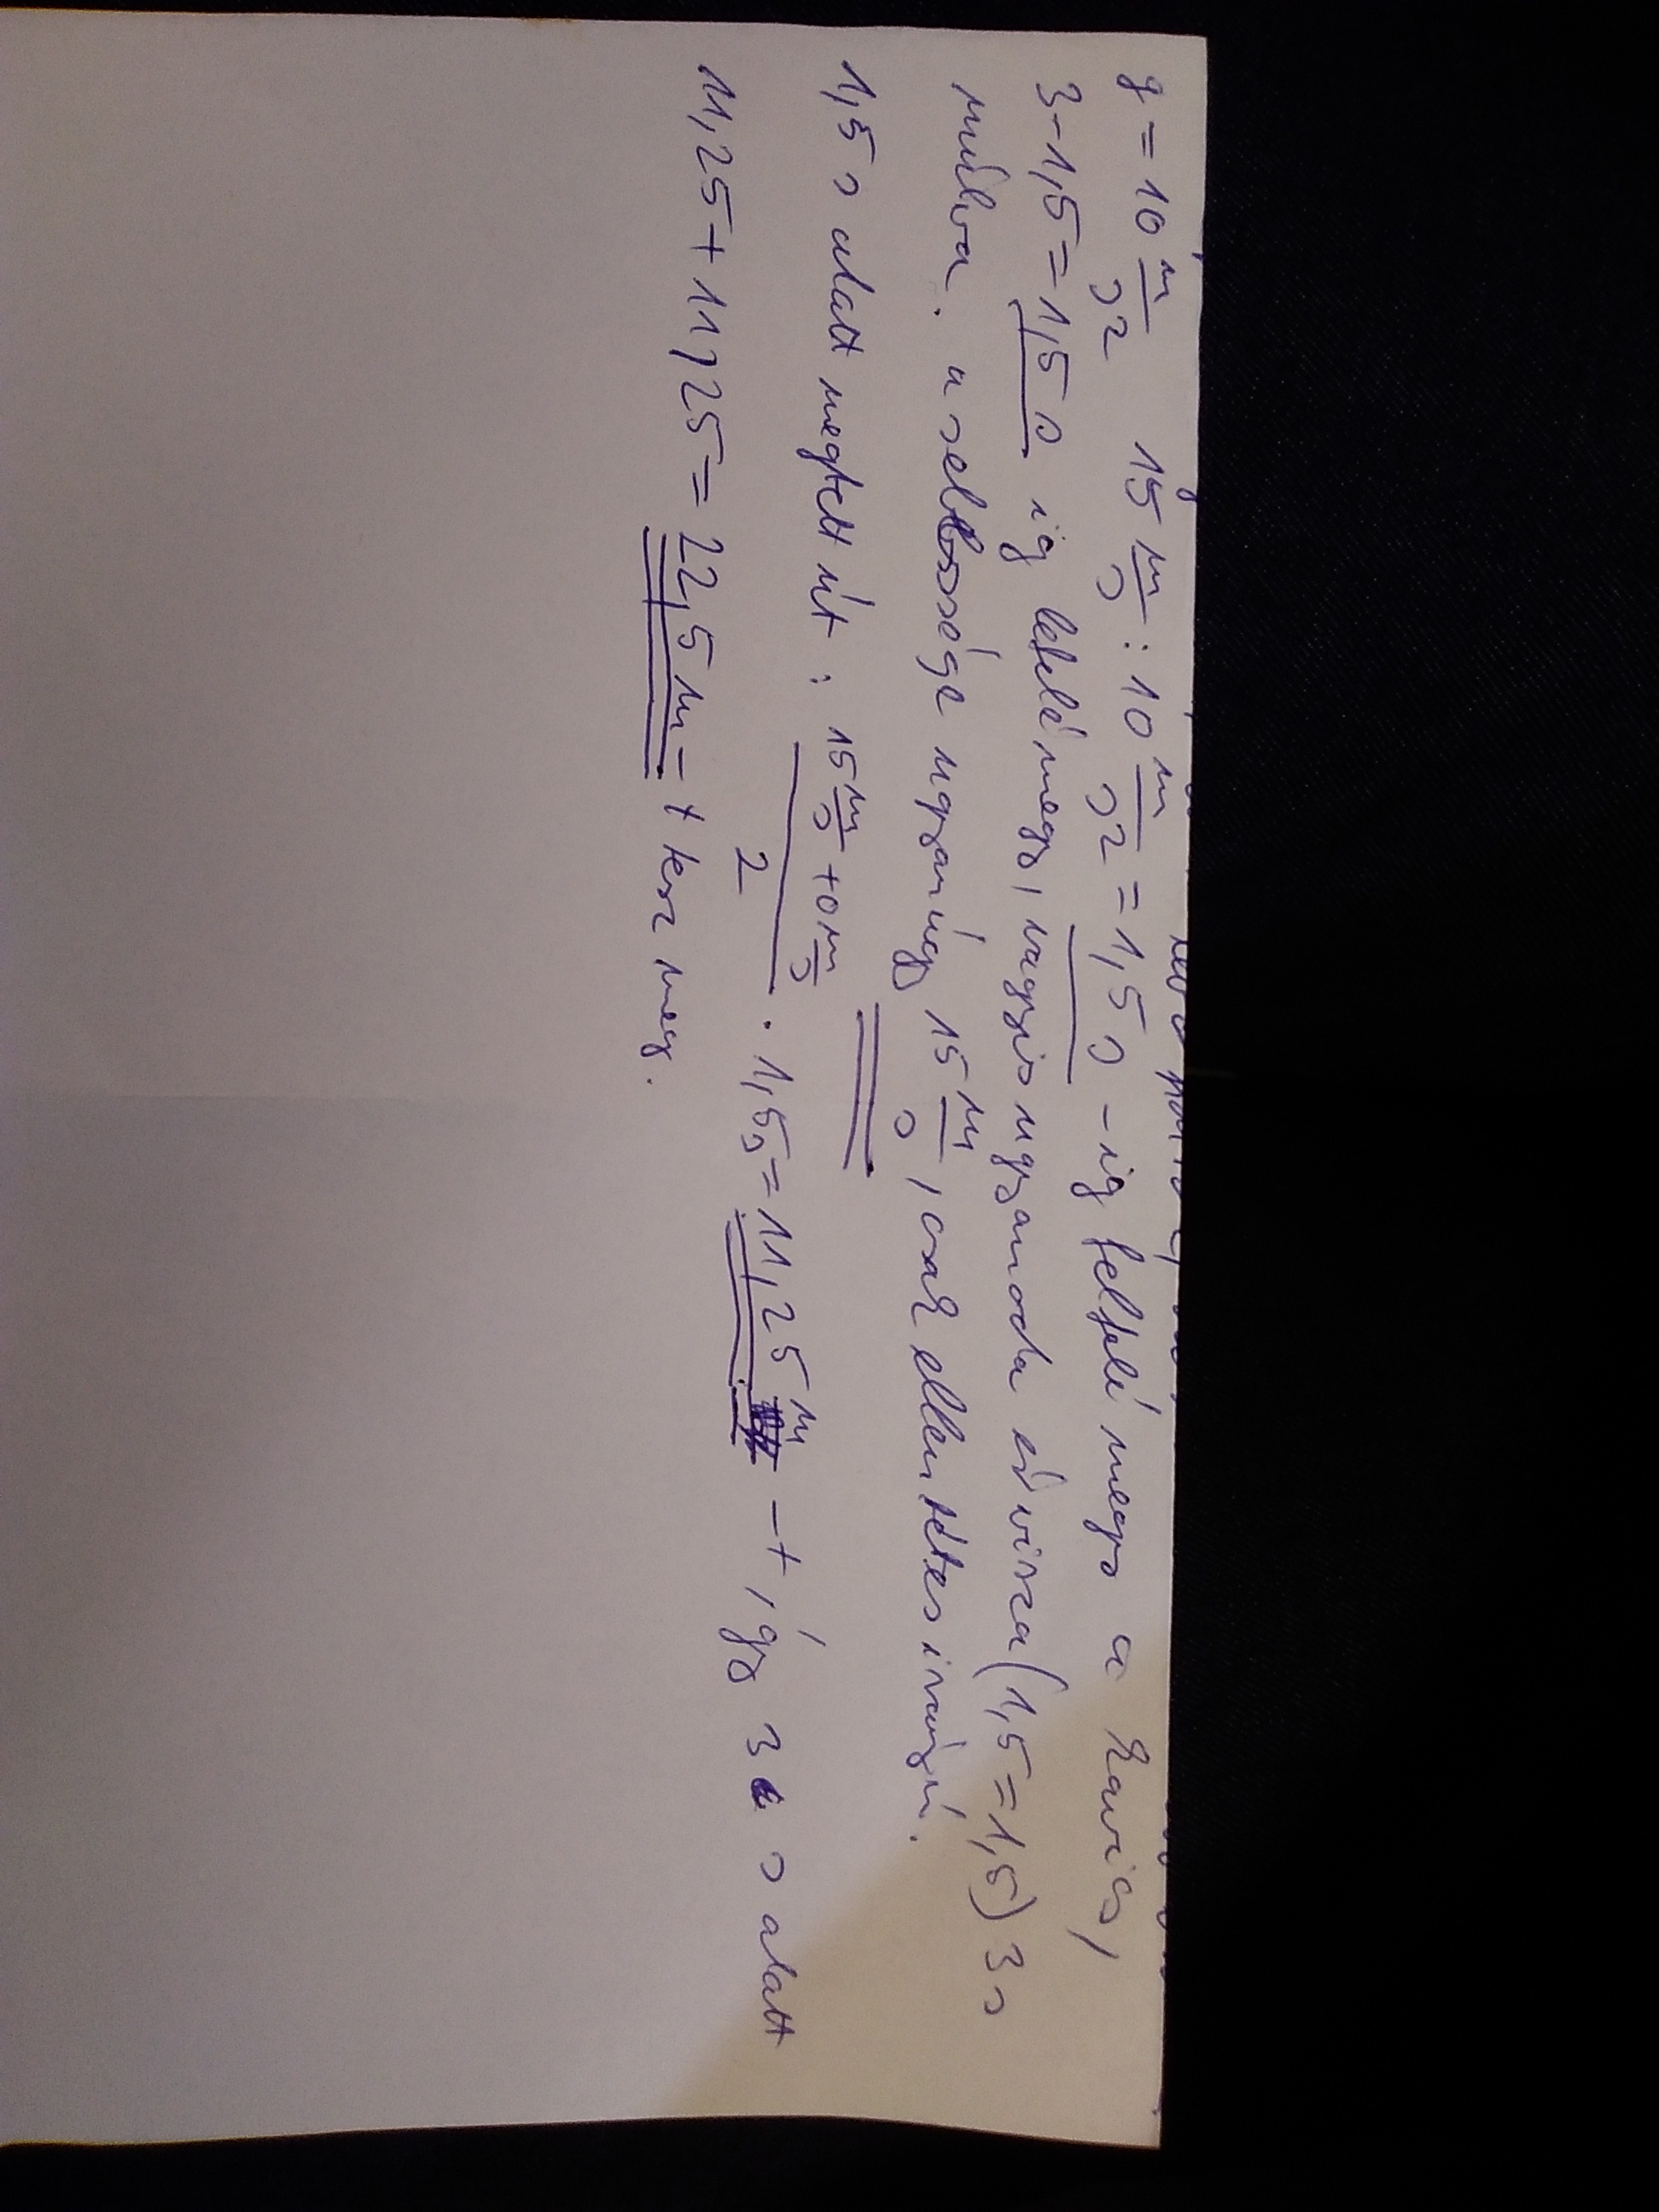 g = 10 m/s2 15 m/s : 10 m/s2 = 1,5 s -ig felfelé megy a kavics,
3-1,5 = 1,5 s ig lefelé megy, vagyis ugyanoda ér vissza (1,5 = 1,5) 3 s
múlva. a sebessége ugyanúgy 15 m/s, csak ellentétes irányú.
1,5 s alatt megtett út : 15 m/s + 0 m/s / 2 · 1,5 s = 11,25 m - t, így 3 s alatt
11,25 + 11,25 = 22,5 m - t tesz meg.